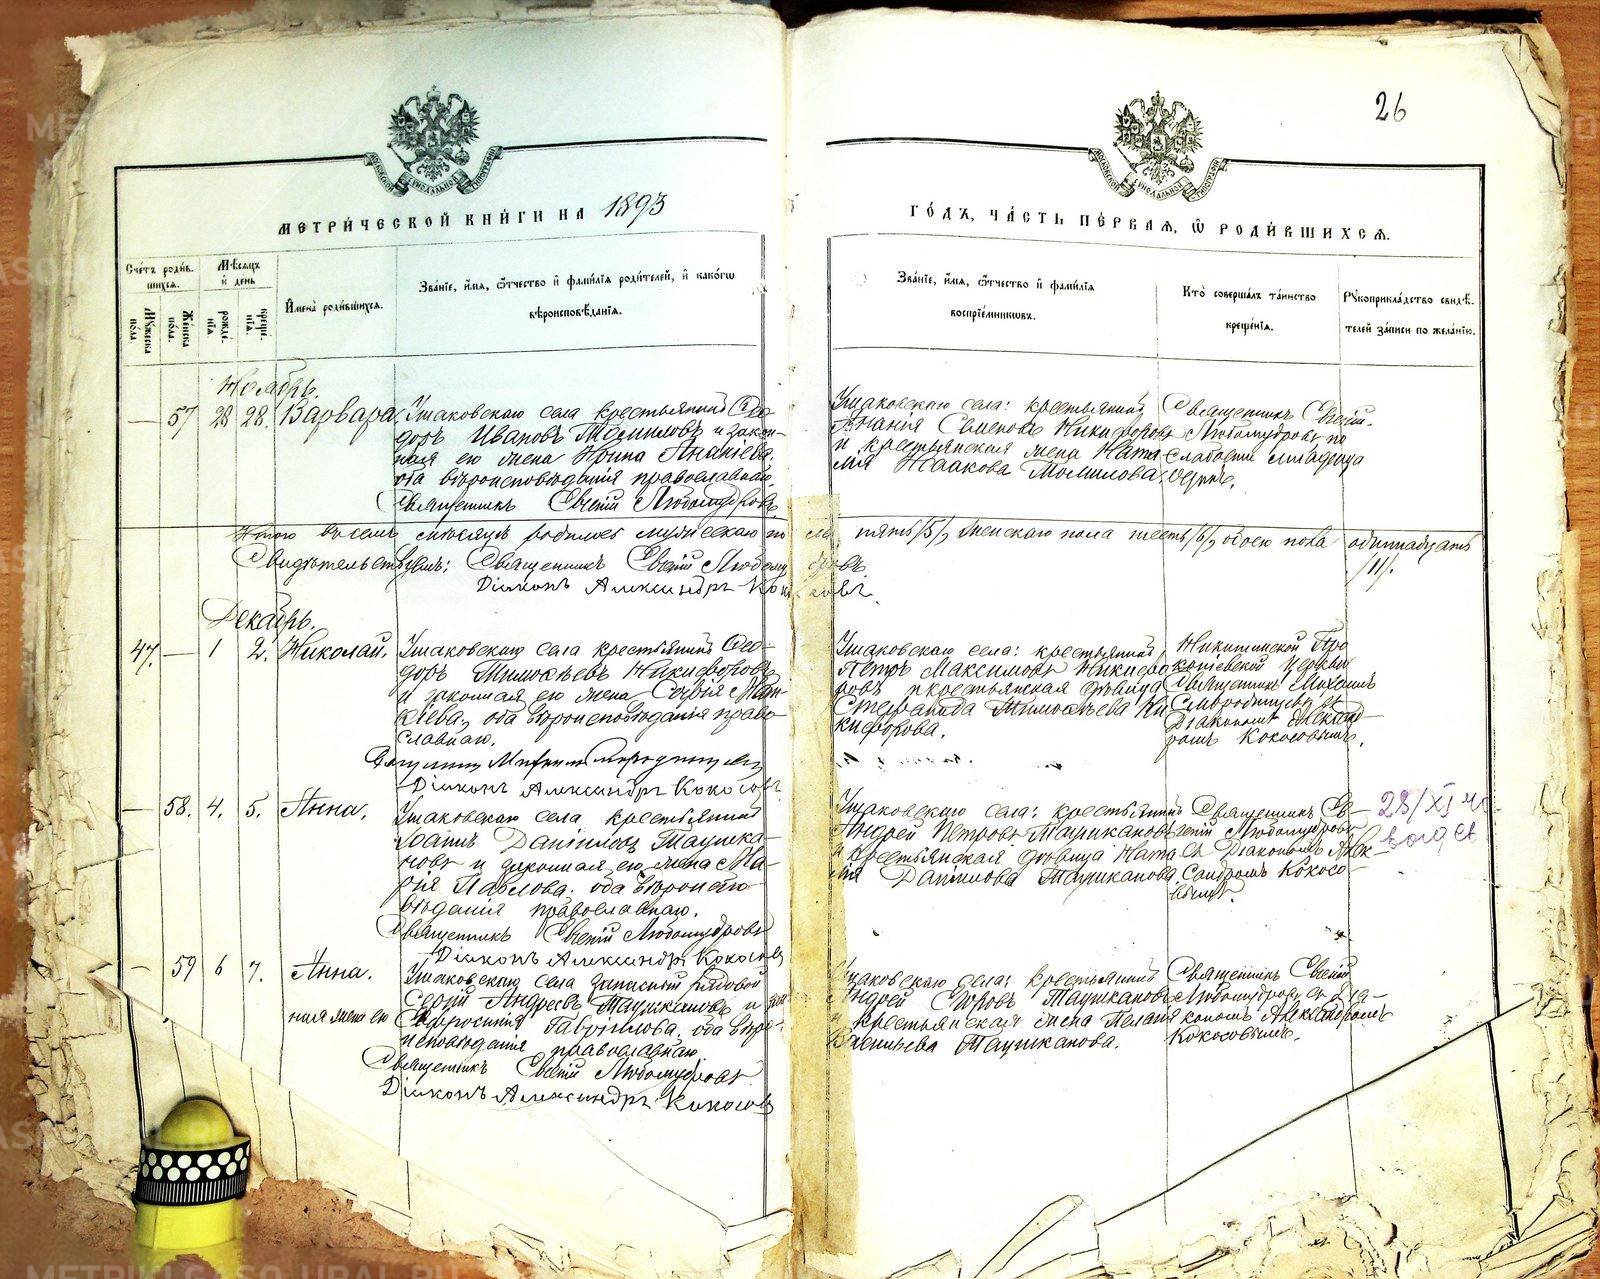 26
МЕТРИ́ЧЕСКОЙ КНИ́ГИ НА 1893
ГО́ДЪ, ЧА́СТЬ ПЕ́РВАЯ, Ѿ РОДИ́ВШИХСЯ.
Сче́тъ роди́в-
шихся.
Мѣ́сяцъ
и҆ день
Му́жеска
по́ла.
Же́нска
по́ла.
рожде́-
нїя.
креще́-
нїя.
И҆мена̀ роди́вшихся.
Зва́нїе, и҆́мя, ѻ҆́тчество и҆ фами́лїя роди́телей, и҆ како́гѡ
вѣроисповѣ́данїя.
Зва́нїе, и҆́мя, ѻ҆́тчество и҆ фами́лїя
воспрїе́мниковъ.
Кто̀ соверша́лъ та́инство
креще́нїя.
Рꙋкоприкла́дство свидѣ́-
телей за́писи по жела́нїю.
Ноябрь.
— 57 28 28. Варвара.
Ушаковскаго села крестьянинъ Ѳео-
доръ Ивановъ Томиловъ и закон-
ная его жена Ирина Ананіева.
оба вѣроисповѣданія православнаго.
Священникъ Евгеній Любомудровъ
Ушаковскаго села: крестьянинъ
Ананія Семеновъ Никифоровъ
и крестьянская жена Ната-
лія Исаакова Томилова.
Священникъ Евгеній
Любомудровъ по
слабости младенца
одинъ.
Итого въ семъ мѣсяцѣ родилось мужескаго по ла пять /5/, женскаго пола шесть /6/, обоего пола одиннадцать
/11/.
Свидѣтельствуемъ: Священникъ Евгеній Любомудровъ
Діаконъ Александръ Кокосовъ.
Декабрь.
47. — 1 2. Николай.
Ушаковскаго села крестьянинъ Ѳео-
доръ Тимоѳеевъ Никифоровъ
и законная его жена Софія Мат-
ѳіева, оба вѣроисповѣданія право-
славнаго.
Діаконъ Александръ Кокосовъ.
Ушаковскаго села: крестьянинъ
Петръ Максимовъ Никифо-
ровъ и крестьянская дѣвица
Стефанида Тимоѳеева Ни-
кифорова.
Никитинской Про-
копіевской церкви
Священникъ Михаилъ
съ
Діакономъ Алексан-
ромъ Кокосовымъ.
— 58. 4. 5. Анна.
Ушаковскаго села крестьянинъ
Іоаннъ Даніиловъ Таушка-
новъ и законная его жена Ма-
рія Павлова. оба вѣроиспо-
вѣданія православнаго.
Священникъ Евгеній Любомудровъ
Діаконъ Александръ Кокосовъ
Ушаковскаго села: крестьянинъ
Андрей Петровъ Таушкановъ
и крестьянская дѣвица Ната-
лія Даніилова Таушканова.
Священникъ Ев-
геній Любомудровъ
съ Діакономъ Алек-
сандромъ Кокосо-
вымъ.
28/XI 40
— 59 6 7. Анна.
Ушаковскаго села запасный рядовой
Сергій Андреевъ Таушкановъ и закон-
ная жена его Евфросинія Гавріилова. оба вѣро-
исповѣданія православнаго.
Священникъ Евгеній Любомудровъ
Діаконъ Александръ Кокосовъ
Ушаковскаго села: крестьянинъ
Андрей Таушкановъ
и крестьянская жена Пелагія
Васильева Таушканова.
Священникъ Евгеній
Любомудровъ съ Діа-
кономъ Александромъ
Кокосовымъ.